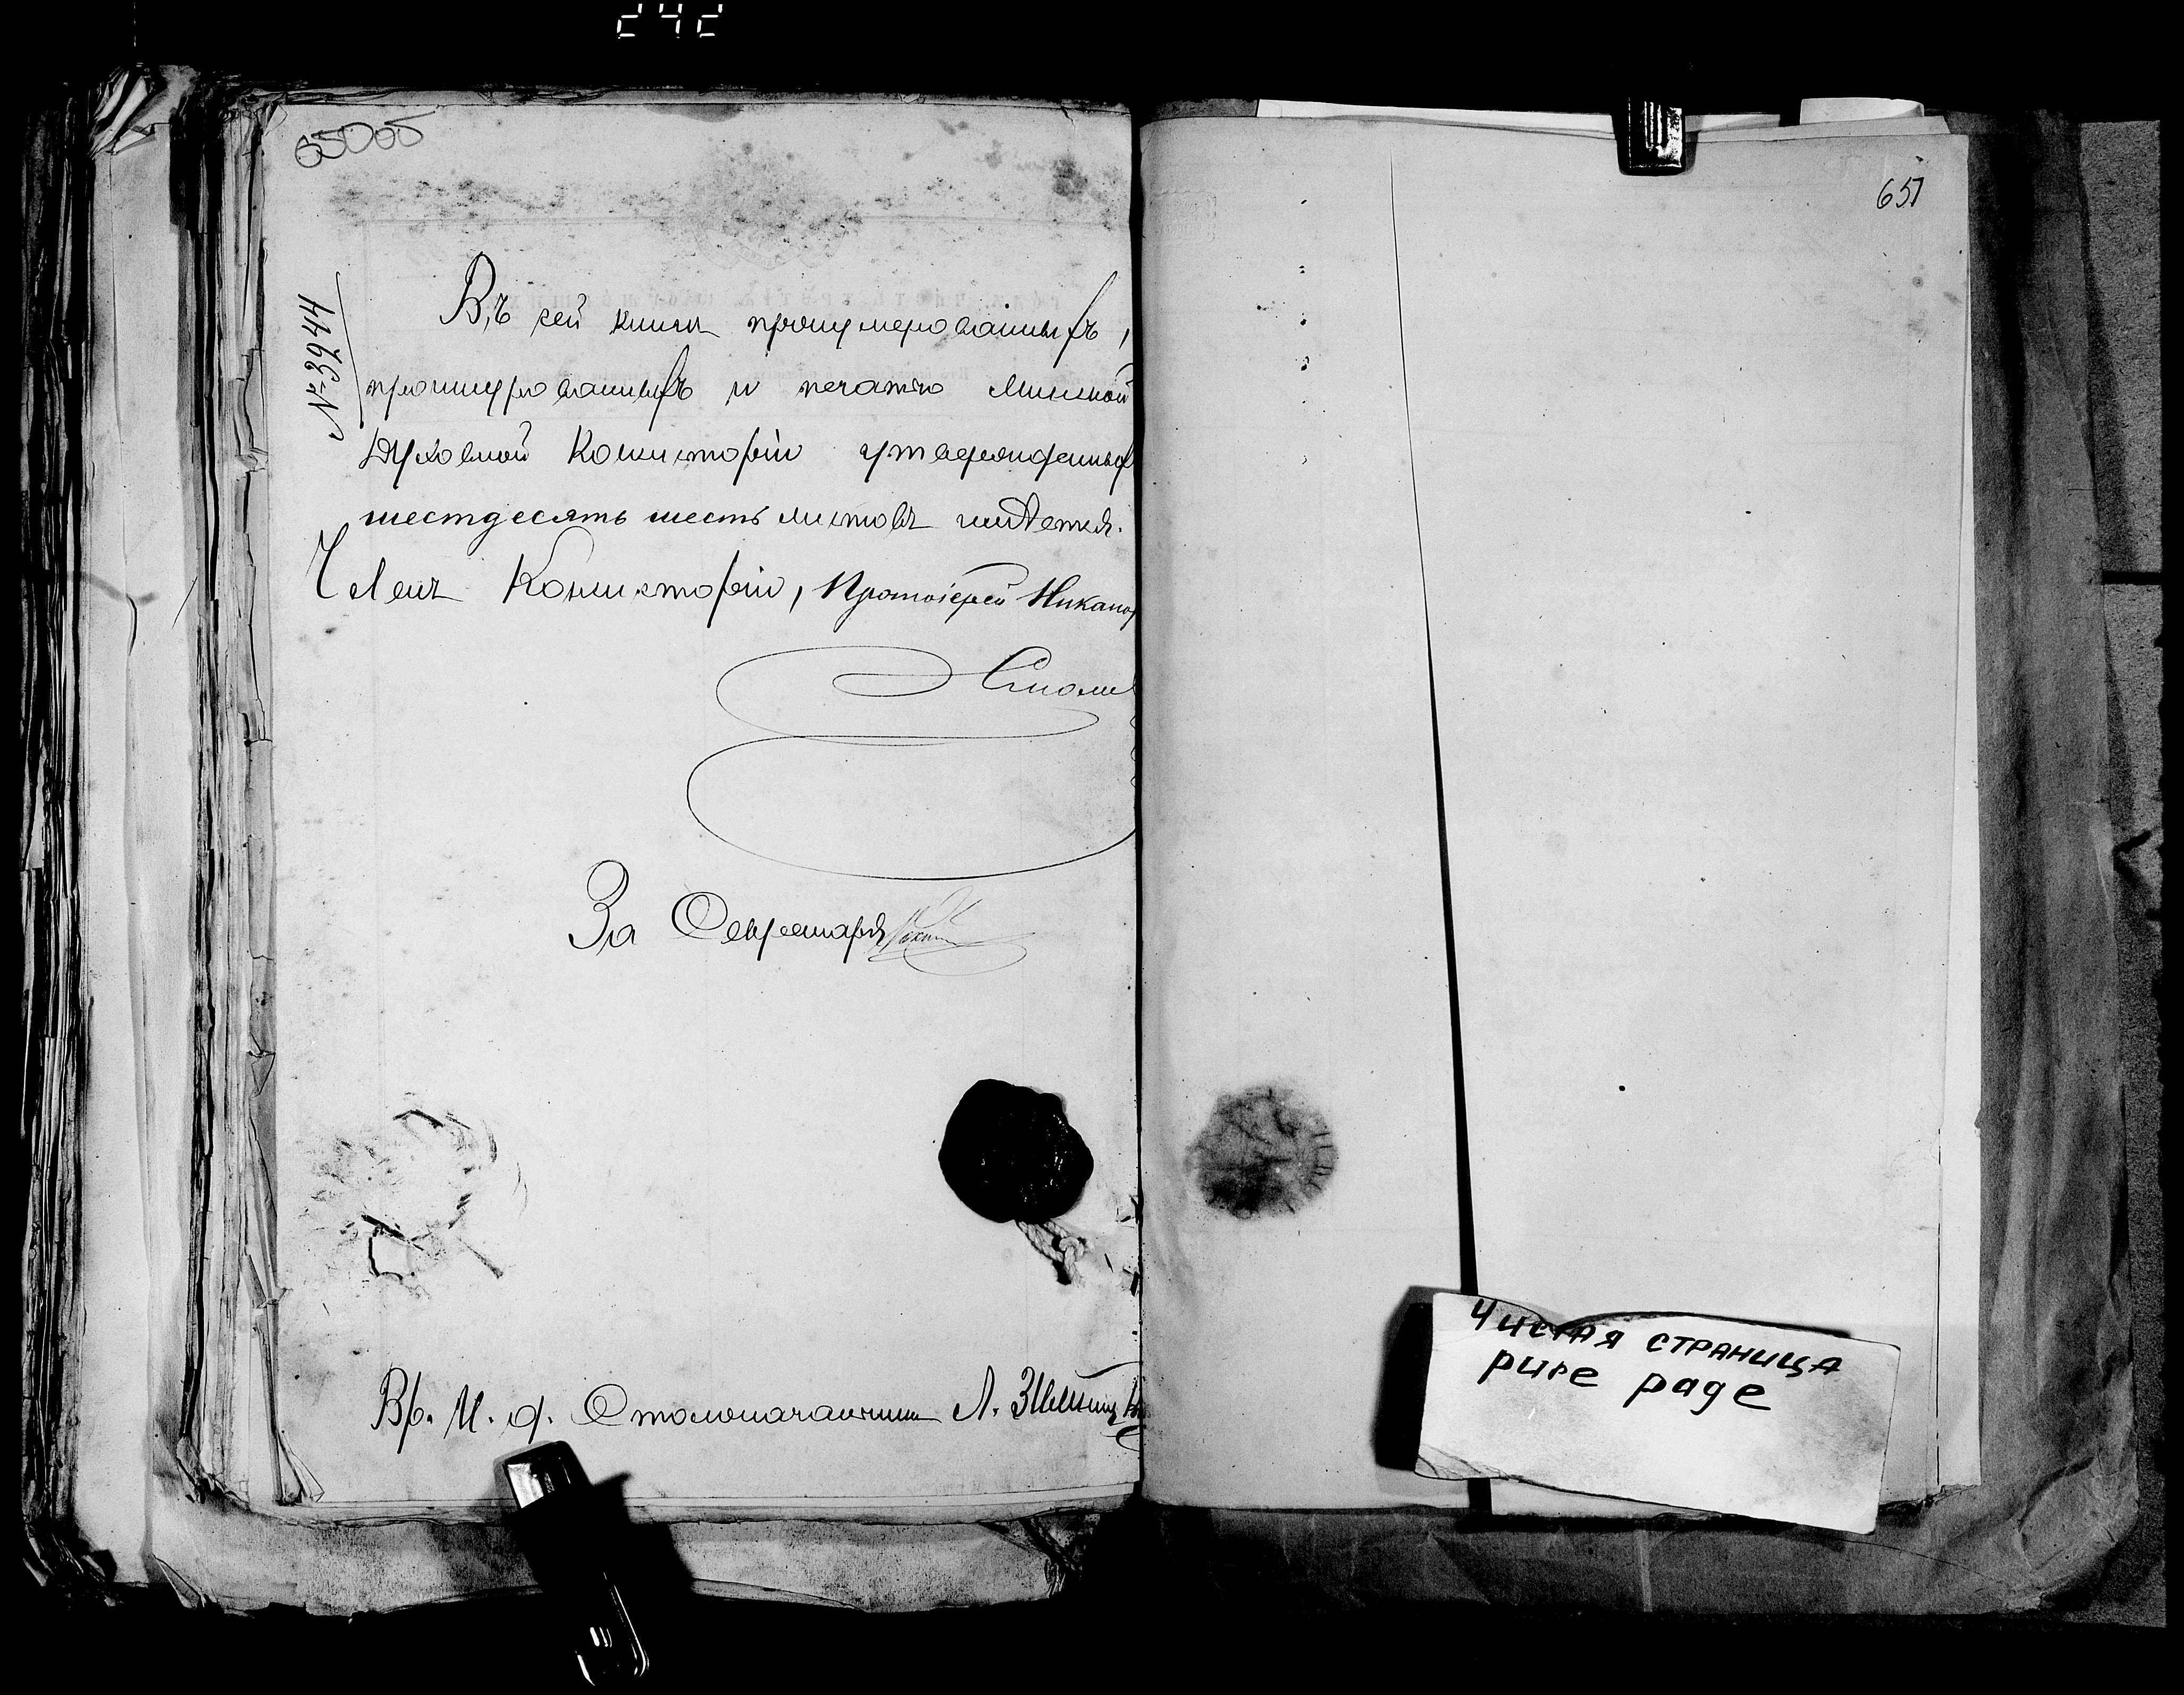 242
65005
№ 3944
Въ сей книгѣ пронумерованныхъ,
прошнурованныхъ и печатью Минской
Духовной Консисторіи утвержденныхъ
шестдесятъ шесть листовъ имѣется.
Членъ Консисторіи, Протоіерей Никанор
Смоли
За Секретаря
Вр. И. д. Столоначальника Л.
657
Чистая страница
pure page